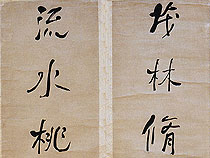 茂林脩
流水桃